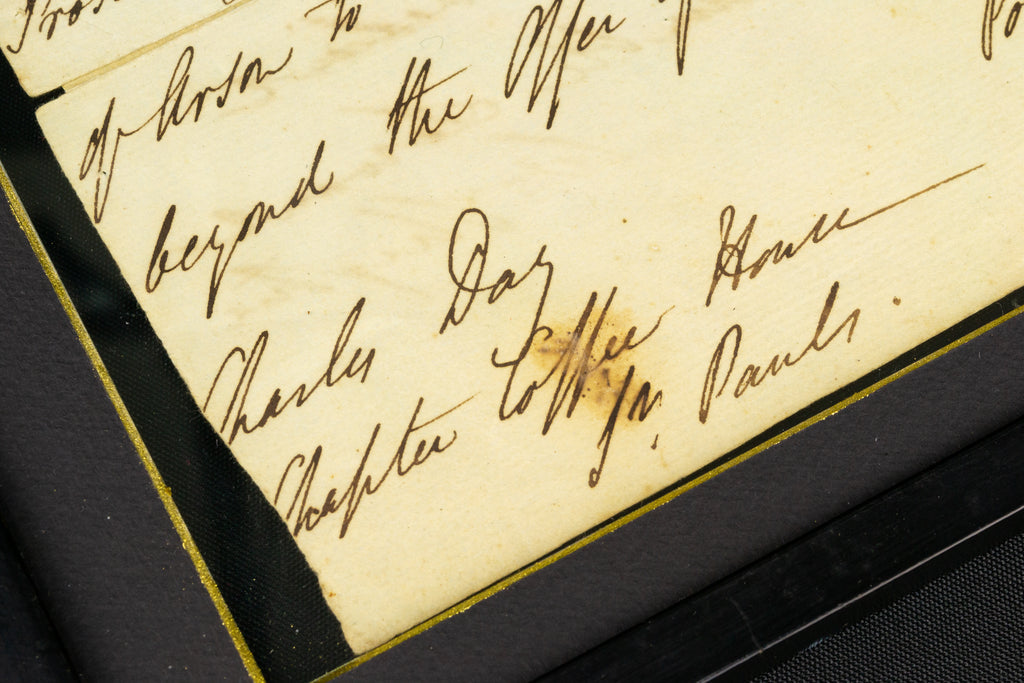 of Arson to
beyond the Offer
Charles Day
Chapter Coffee House
St. Pauls.